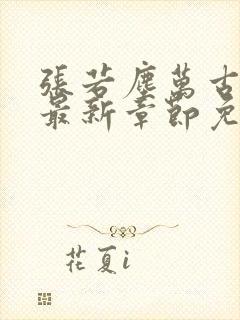 張若塵萬古
最新章節免
花夏i